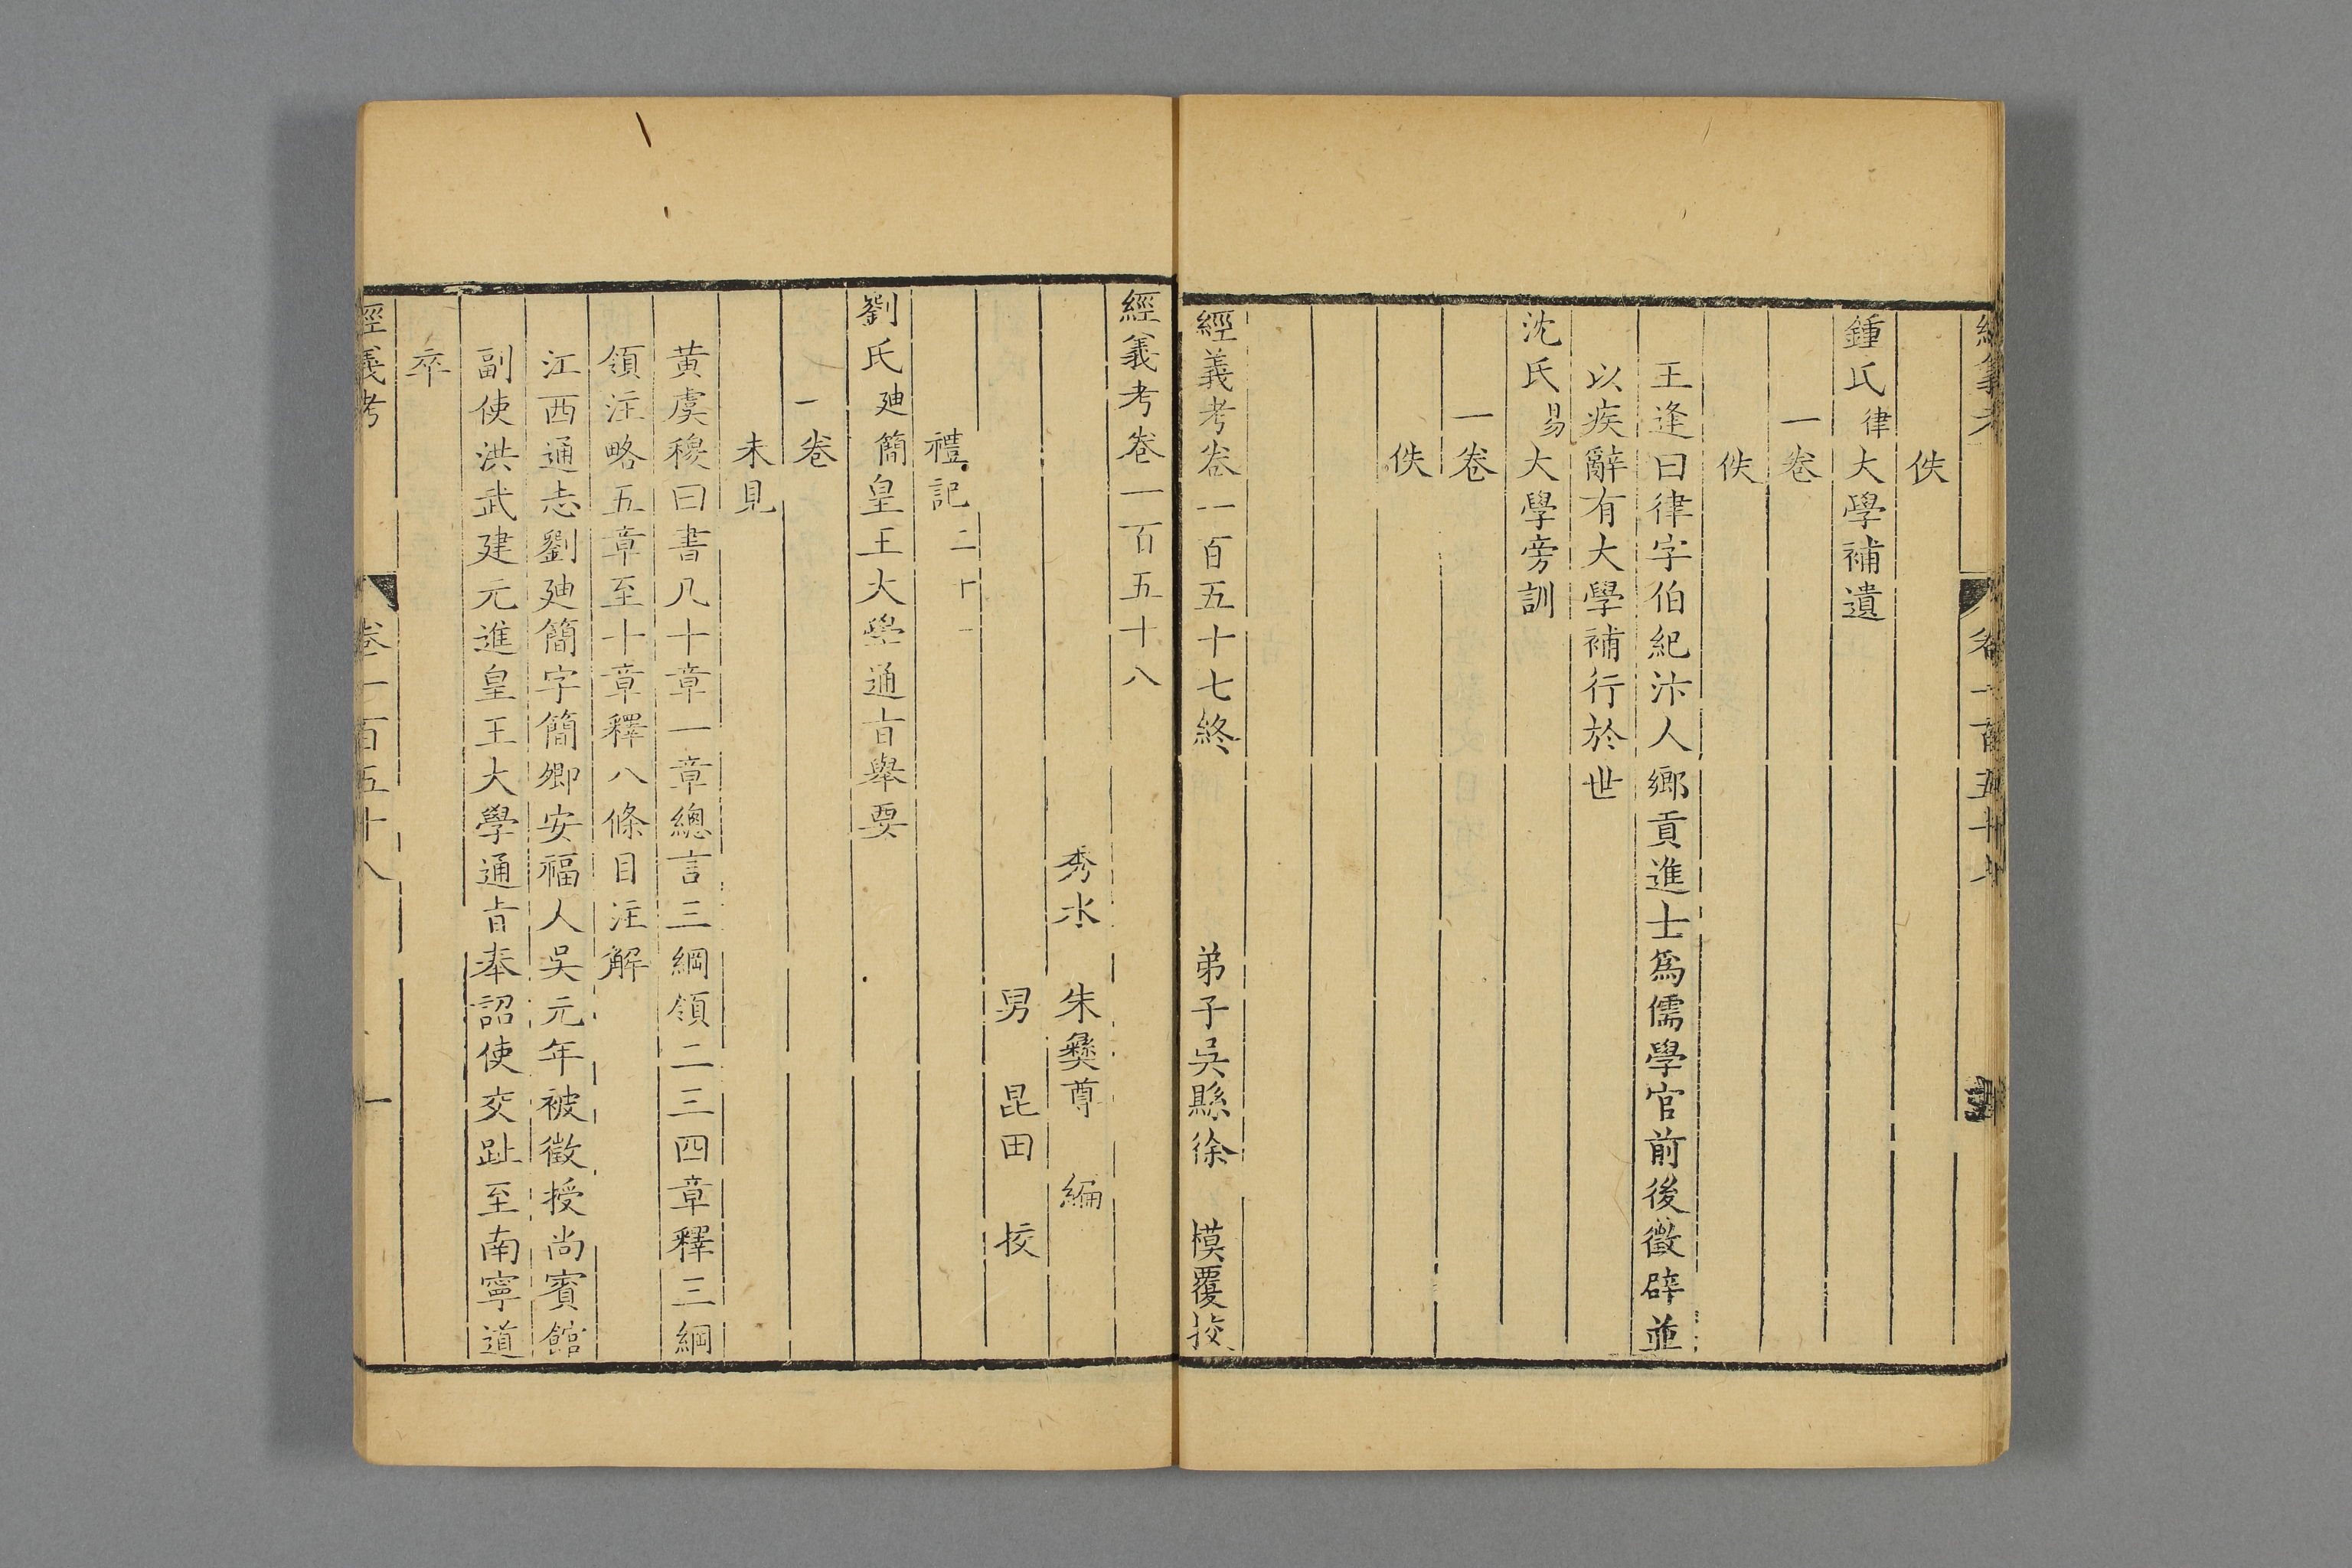 佚
鍾氏律大學補遺
一卷
佚
王逢曰律字伯紀汴人鄉貢進士爲儒學官前後徵辟並
以疾辭有大學補行於世
沈氏易大學旁訓
一卷
佚
經義考卷一百五十七終 弟子吳縣徐 模覆挍
經義考卷一百五十八
秀水 朱彝尊 編
男 昆田 挍
禮記二十一
劉氏廸簡皇王大學通旨舉要
一卷
未見
黃虞稷曰書凡十章一章總言三綱領二三四章釋三綱
領注略五章至十章釋八條目注解
江西通志劉廸簡字簡卿安福人吳元年被徵授尚賓館
副使洪武建元進皇王大學通旨奉詔使交趾至南寧道
卒
經義考 卷一百五十八 一